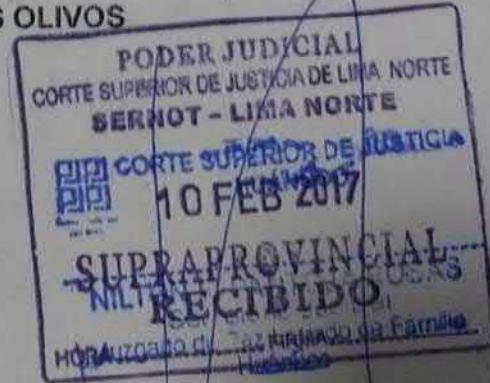 S OLIVOS
PODER JUDICIAL
CORTE SUPERIOR DE JUSTICIA DE LIMA NORTE
SERNOT - LIMA NORTE
CORTE SUPERIOR DE JUSTICIA
10 FEB 2017
SUPRAPROVINCIAL
NILT
RECIBIDO
HORA
Familia